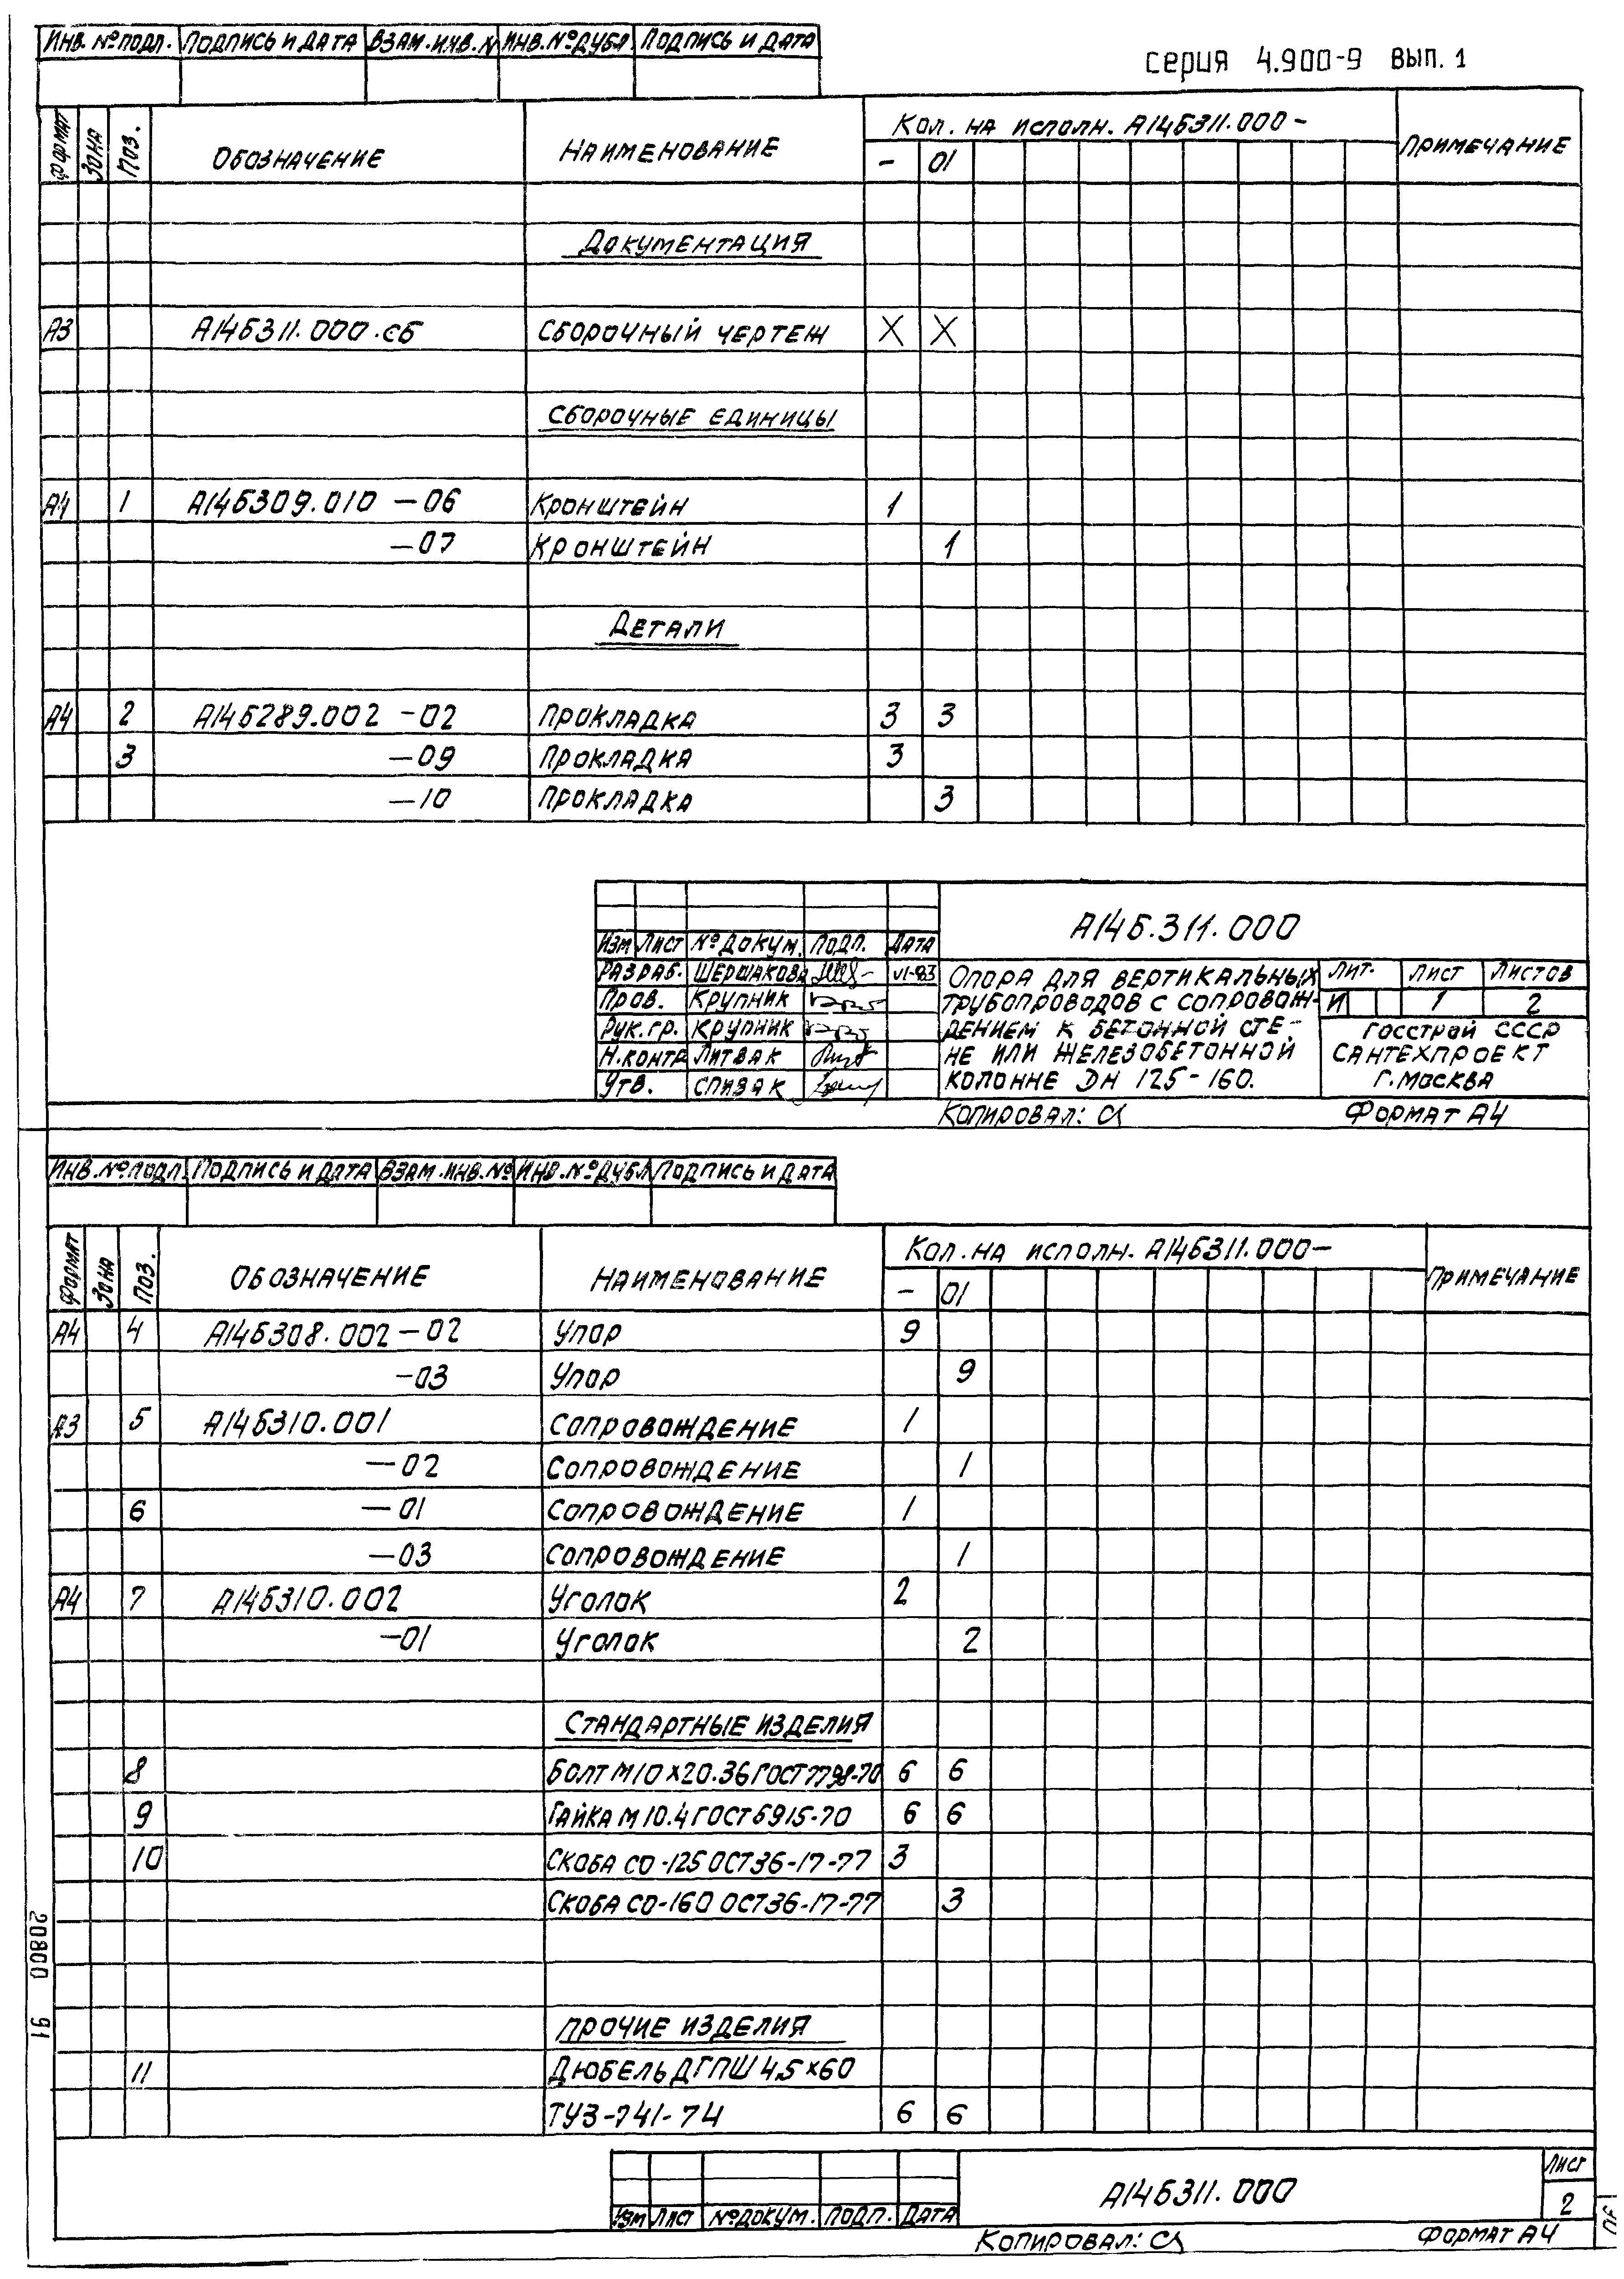 ИНВ. № ПОДЛ. ПОДПИСЬ И ДАТА ВЗАМ. ИНВ. № ИНВ. № ДУБЛ. ПОДПИСЬ И ДАТА
серия 4.900-9 вып. 1
ФОРМАТ ЗОНА ПОЗ. ОБОЗНАЧЕНИЕ НАИМЕНОВАНИЕ КОЛ. НА ИСПОЛН. А14Б311.000- ПРИМЕЧАНИЕ
- 01
ДОКУМЕНТАЦИЯ
А3 А14Б311.000.СБ СБОРОЧНЫЙ ЧЕРТЕЖ X X
СБОРОЧНЫЕ ЕДИНИЦЫ
А4 1 А14Б309.010 -06 КРОНШТЕЙН 1
-07 КРОНШТЕЙН 1
ДЕТАЛИ
А4 2 А14Б289.002 -02 ПРОКЛАДКА 3 3
3 -09 ПРОКЛАДКА 3
-10 ПРОКЛАДКА 3
А14Б.311.000
ИЗМ ЛИСТ № ДОКУМ. ПОДП. ДАТА
РАЗРАБ. ШЕРШАКОВА VI-83
ПРОВ. КРУПНИК
РУК. ГР. КРУПНИК
Н. КОНТР ЛИТВАК
УТВ. СПИВАК
ОПОРА ДЛЯ ВЕРТИКАЛЬНЫХ
ТРУБОПРОВОДОВ С СОПРОВОЖ-
ДЕНИЕМ К БЕТОННОЙ СТЕ-
НЕ ИЛИ ЖЕЛЕЗОБЕТОННОЙ
КОЛОННЕ DН 125-160.
ЛИТ. ЛИСТ ЛИСТОВ
И 1 2
ГОССТРОЙ СССР
САНТЕХПРОЕКТ
Г. МОСКВА
КОПИРОВАЛ: ФОРМАТ А4
ИНВ. № ПОДЛ. ПОДПИСЬ И ДАТА ВЗАМ. ИНВ. № ИНВ. № ДУБЛ ПОДПИСЬ И ДАТА
ФОРМАТ ЗОНА ПОЗ. ОБОЗНАЧЕНИЕ НАИМЕНОВАНИЕ КОЛ. НА ИСПОЛН. А14Б311.000- ПРИМЕЧАНИЕ
- 01
А4 4 А14Б308.002-02 УПОР 9
-03 УПОР 9
А3 5 А14Б310.001 СОПРОВОЖДЕНИЕ 1
-02 СОПРОВОЖДЕНИЕ 1
6 -01 СОПРОВОЖДЕНИЕ 1
-03 СОПРОВОЖДЕНИЕ 1
А4 7 А14Б310.002 УГОЛОК 2
-01 УГОЛОК 2
СТАНДАРТНЫЕ ИЗДЕЛИЯ
8 БОЛТ М10×20.36 ГОСТ 7798-70 6 6
9 ГАЙКА М10.4 ГОСТ 5915-70 6 6
10 СКОБА СО-125 ОСТ36-17-77 3
СКОБА СО-160 ОСТ36-17-77 3
ПРОЧИЕ ИЗДЕЛИЯ
11 ДЮБЕЛЬ ДГПШ 4,5×60
ТУ3-741-74 6 6
20800 91
А14Б311.000
ЛИСТ
2
ИЗМ ЛИСТ № ДОКУМ. ПОДП. ДАТА
КОПИРОВАЛ: ФОРМАТ А4